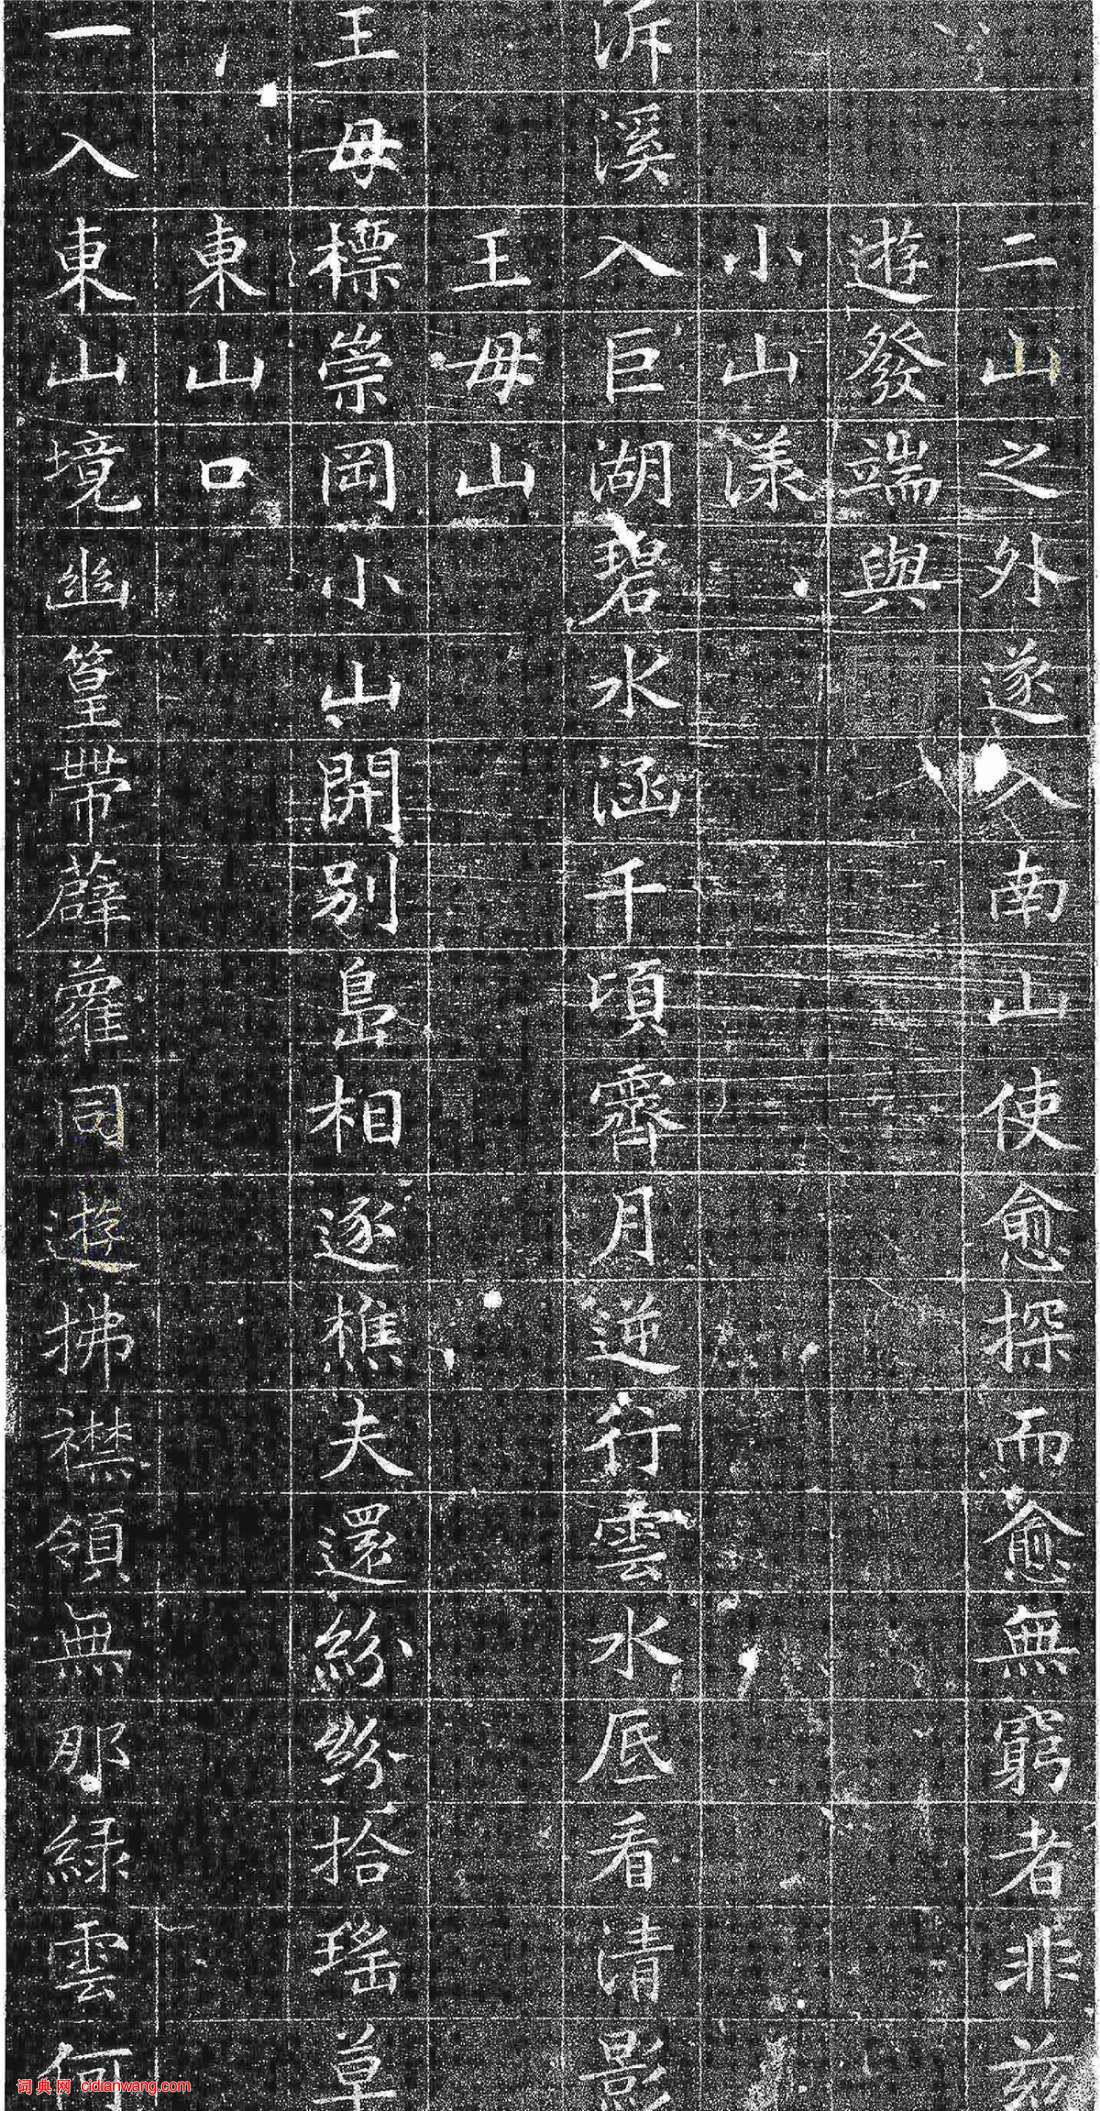 二山之外遂入南山使愈探而愈無窮者非兹
遊發端與
小山漾
泝溪入巨湖碧水涵千頃霽月逆行雲水底看清影
王母山
王母標崇岡小山開別島相逐樵夫還紛紛拾瑤草
東山口
一入東山境幽篁帶薜蘿同遊拂襟領無那綠雲何
词典网 cidianwang.com